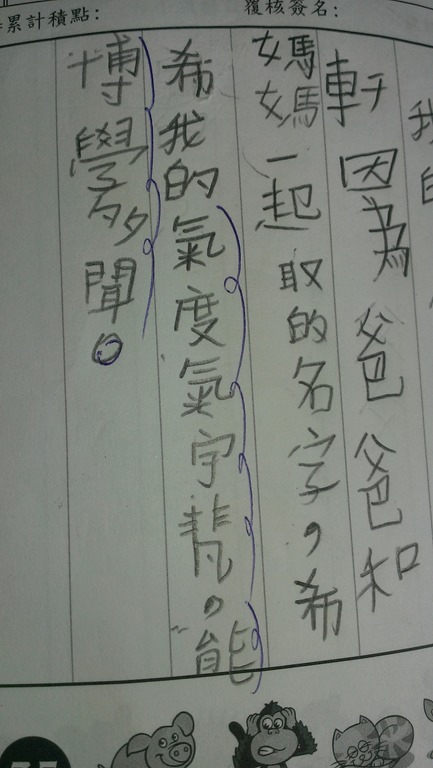 累計積點：
覆核簽名：
我的
軒因為爸爸和
媽媽一起取的名字，希
希我的氣度氣宇非凡，能
博學多聞。